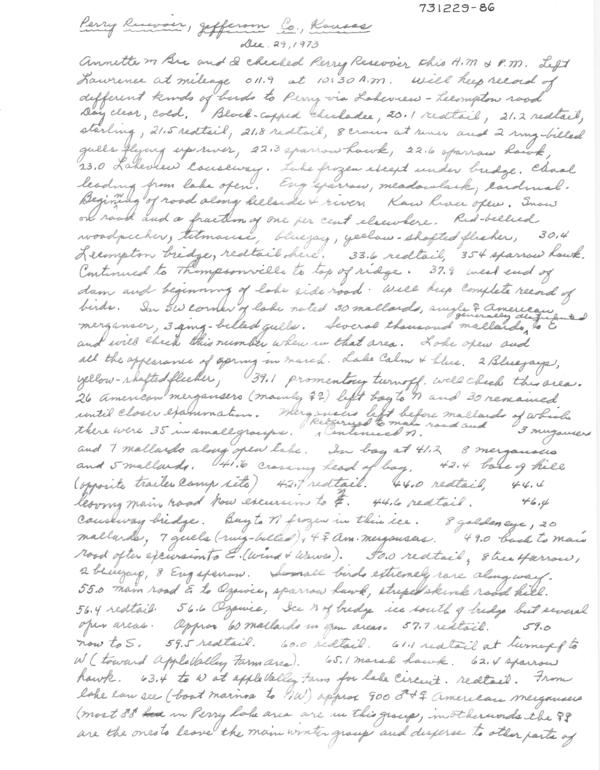 731229-86
Perry Resevoir, Jefferson Co., Kansas
Dec. 29, 1973
Annette M Bee and I checked Perry Resevoir this A.M & P.M. Left
Lawrence at mileage 011.9 at 10:30 A.M. Will keep record of
different kinds of birds to Perry via Lakeview - Lecompton road
Day clear, cold. Black-capped chickadee, 20.1 redtail, 21.2 redtail,
starling, 21.5 redtail, 21.8 redtail, 8 crows at river and 2 ring-billed
gulls flying up river, 22.3 sparrow hawk, 22.6 sparrow hawk,
23.0 Lakeview causeway. Lake frozen except under bridge. Canal
leading from lake open. Eng sparrow, meadowlark, cardinal.
Begining of road along hillside & river. Kaw River open. Snow
on road and a fraction of one per cent elsewhere. Red-bellied
woodpecker, titmouse, bluejay, yellow-shafted flicker, 30.4
Lecompton bridge, redtail here. 33.6 redtail, 35.4 sparrow hawk.
Continued to Thompsonville to top of ridge. 37.9 west end of
dam and beginning of lake side road. Will keep complete record of
birds. In SW corner of lake noted 30 mallards, single ♀ American
merganser, 3 ring-billed gulls. Several thousand mallards, generally distributed to E
and will check this number when in that area. Lake open and
all the appearance of spring in March. Lake calm & blue. 2 Bluejays,
yellow-shafted flicker, 39.1 promentory turnoff. Will check this area.
26 American mergansers (mainly ♀♀) left bay to N and 30 remained
until closer examination. Mergansers left before mallards of which
there were 35 in small groups. Returned to main road and Continued N. 3 mergansers
and 7 mallards along open lake. In bay at 41.2 8 mergansers
and 5 mallards. 41.6 crossing head of bay. 42.4 base of hill
(opposite trailer camp site) 42.7 redtail. 44.0 redtail, 44.4
leaving main road now excursion to E. 44.6 redtail. 46.4
causeway bridge. Bay to N frozen in thin ice. 8 goldeneye, 20
mallards, 7 gulls (ring-billed), 4 ♀ Am. merganser. 49.0 back to main
road after excursion to E. (Wind & Waves). 50.0 redtail, 8 tree sparrow,
2 bluejay, 8 Eng sparrow. Small birds extremely rare along way.
55.0 main road E to Ozawie, sparrow hawk, striped skunk road kill.
56.4 redtail. 56.6 Ozawie, Ice N of bridge ice south of bridge but several
open areas. Approx 60 mallards in open areas. 57.7 redtail. 59.0
now to S. 59.5 redtail. 60.0 redtail. 61.1 redtail at turnoff to
W (toward Apple Valley Farm area). 65.1 marsh hawk. 62.4 sparrow
hawk. 63.4 to W at Apple Valley Farm for lake circuit. redtail. From
lake can see (boat marina to NW) approx 900 ♂ & ♀ American mergansers
(most ♂♂ in Perry lake area are in this group, in otherwords the ♀♀
are the ones to leave the main winter group and disperse to other parts of